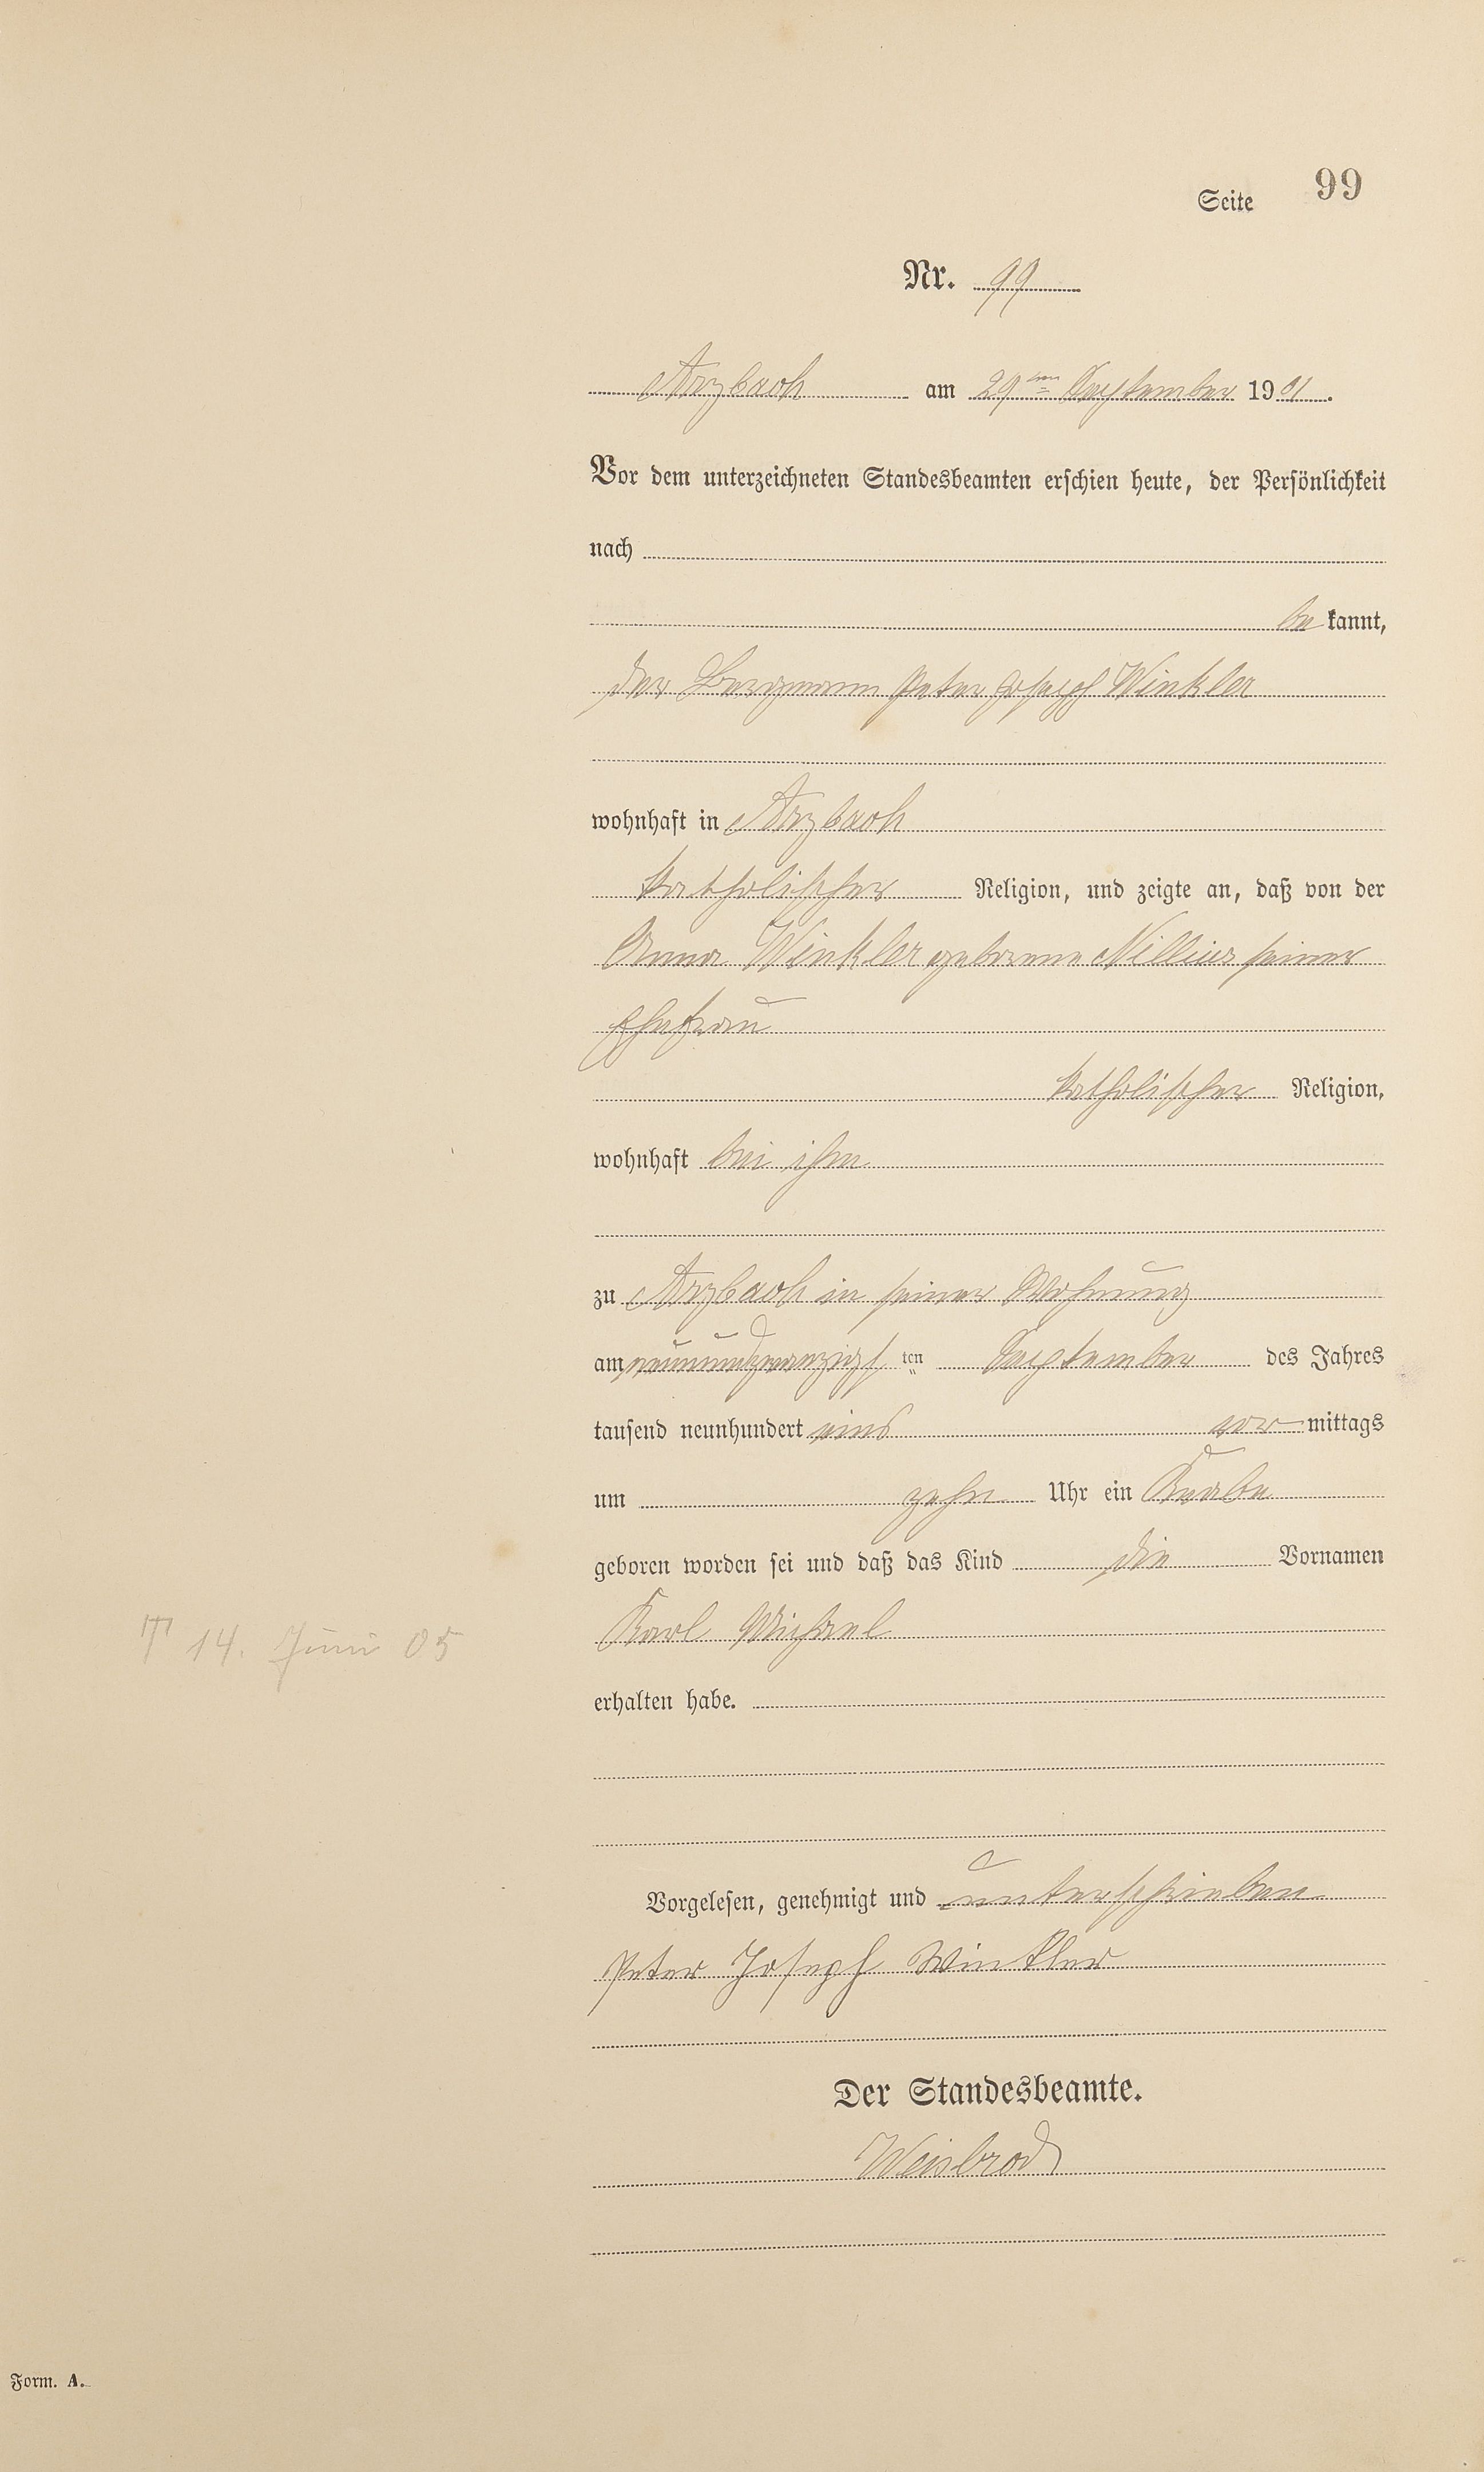 Seite 99
Nr. 99
Arzbach am 29ten September 1901.
Vor dem unterzeichneten Standesbeamten erschien heute, der Persönlichkeit
nach
bekannt,
der Bergmann Peter Joseph Winkler
wohnhaft in Arzbach
katholischer Religion, und zeigte an, daß von der
Anna Winkler geborene Nillius seiner
Ehefrau
katholischer Religion,
wohnhaft bei ihm
zu Arzbach in seiner Wohnung
am neunundzwanzigsten September des Jahres
tausend neunhundert eins vormittags
um zehn Uhr ein Knabe
geboren worden sei und daß das Kind die Vornamen
Karl Michael
14. Juni 05
erhalten habe.
Vorgelesen, genehmigt und unterschrieben
Peter Joseph Winkler
Der Standesbeamte.
Weisbrod
Form. A.